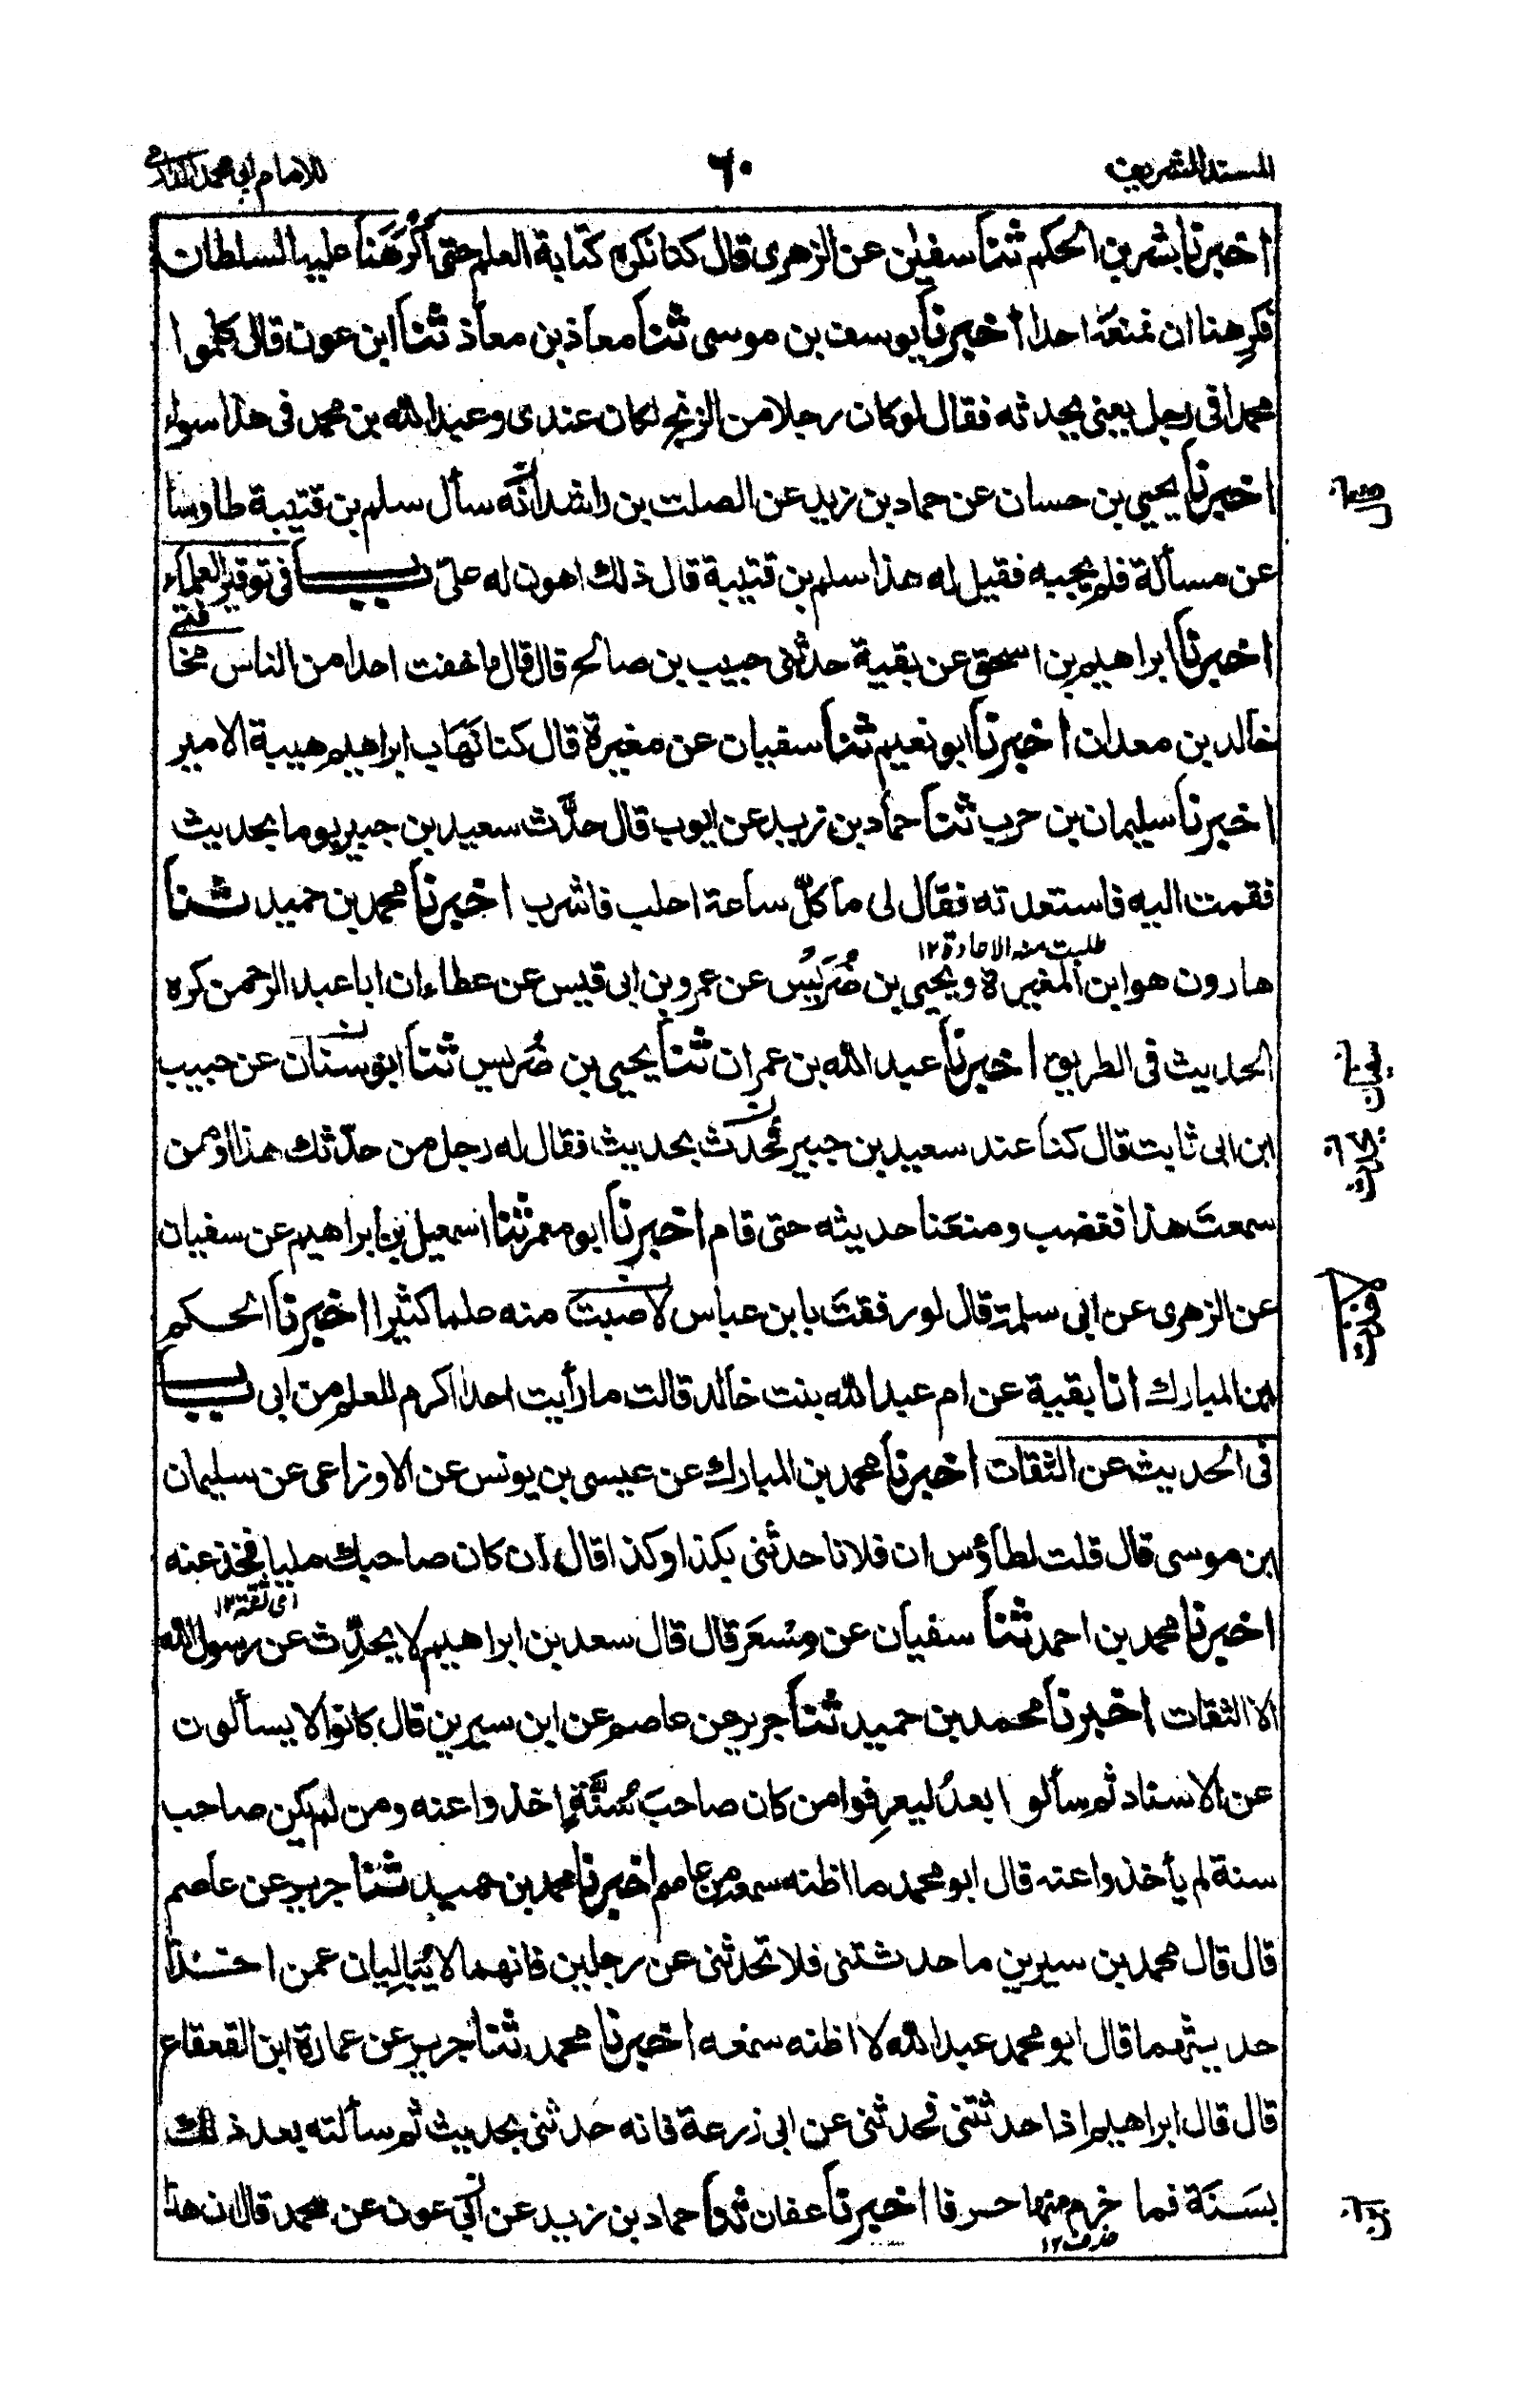 المسند الشريف
٦٠
للامام ابي محمد الدارمي
اخبرنا بشر بن الحكم ثنا سفيٰن عن الزهرى قال كنا نكره كتابة العلم حتى اَكْرَهَنا عليه السلطان
فكرِهنا ان نمنعَه احدا اخبرنا يوسف بن موسى ثنا معاذ بن معاذ ثنا ابن عون قال كلموا
محمدا فى رجل يعنى يحدثه فقال لو كان رجلا من الزنج لكان عندى وعبد الله بن محمد فى هذا سواء
اخبرنا يحيى بن حسان عن حماد بن زيد عن الصلت بن راشد انه سأل سلم بن قتيبة طاوسا
عن مسألة فلم يجبه فقيل له هذا سلم بن قتيبة قال ذلك اهون له علىّ باب فى توقير العلماء
اخبرنا ابراهيم بن اسحق عن بقية حدثنى حبيب بن صالح قال قال ما خفت احدا من الناس مخافتى
خالد بن معدان اخبرنا ابو نعيم ثنا سفيان عن مغيرة قال كنا نَهَاب ابراهيم هيبة الامير
اخبرنا سليمان بن حرب ثنا حماد بن زيد عن ايوب قال حدَّث سعيد بن جبير يوما بحديث
فقمت اليه فاستعدته فقال لى ما كلّ ساعة احلب فاشرب اخبرنا محمد بن حميد ثنا
طلبت منه الاعادة ١٢
هارون هو ابن المغيرة ويحيى بن ضُرَيْس عن عمرو بن ابى قيس عن عطاء ان ابا عبد الرحمن كره
الحديث فى الطريق اخبرنا عبد الله بن عمران ثنا يحيى بن ضُريس ثنا ابو سنان عن حبيب
ابن ابى ثابت قال كنا عند سعيد بن جبير فحدث بحديث فقال له رجل من حدّثك هذا او ممن
سمعتَ هذا فغضب ومنعَنا حديثه حتى قام اخبرنا ابو معمر ثنا اسمعيل بن ابراهيم عن سفيان
عن الزهرى عن ابى سلمة قال لو رفقتَ بابن عباس لاصبتَ منه علما كثيرا اخبرنا الحكم
ابن المبارك انا بقية عن ام عبد الله بنت خالد قالت ما رأيت احدا اكرم للعلم من ابى باب
فى الحديث عن الثقات اخبرنا محمد بن المبارك عن عيسى بن يونس عن الاوزاعى عن سليمان
بن موسى قال قلت لطاؤس ان فلانا حدثنى بكذا وكذا قال ان كان صاحبك مليا فخذ عنه
اى ثقة ١٢
اخبرنا محمد بن احمد ثنا سفيان عن مِسْعَر قال قال سعد بن ابراهيم لا يحدِّث عن رسول الله
الا الثقات اخبرنا محمد بن حميد ثنا جرير عن عاصم عن ابن سيرين قال كانوا لا يسألون
عن الاسناد ثم سألوا بعدُ ليعرِفوا من كان صاحبَ سُنَّةٍ اخذوا عنه ومن لم يكن صاحب
سنة لم يأخذوا عنه قال ابو محمد ما اظنه سمعه من عاصم اخبرنا محمد بن حميد ثنا جرير عن عاصم
قال قال محمد بن سيرين ما حدثتنى فلا تحدثنى عن رجلين فانهما لا يُبَالِيان عمن اخذا
حديثهما قال ابو محمد عبد الله لا اظنه سمعه اخبرنا محمد ثنا جرير عن عمارة ابن القعقاع
قال قال ابراهيم اذا حدثتنى فحدثنى عن ابى زرعة فانه حدثنى بحديث ثم سألته بعد ذلك
بسَنَة فما خرم منها حرفا اخبرنا عفان ثنا حماد بن زيد عن ابن عون عن محمد قال ان هذا
حذف ١٢